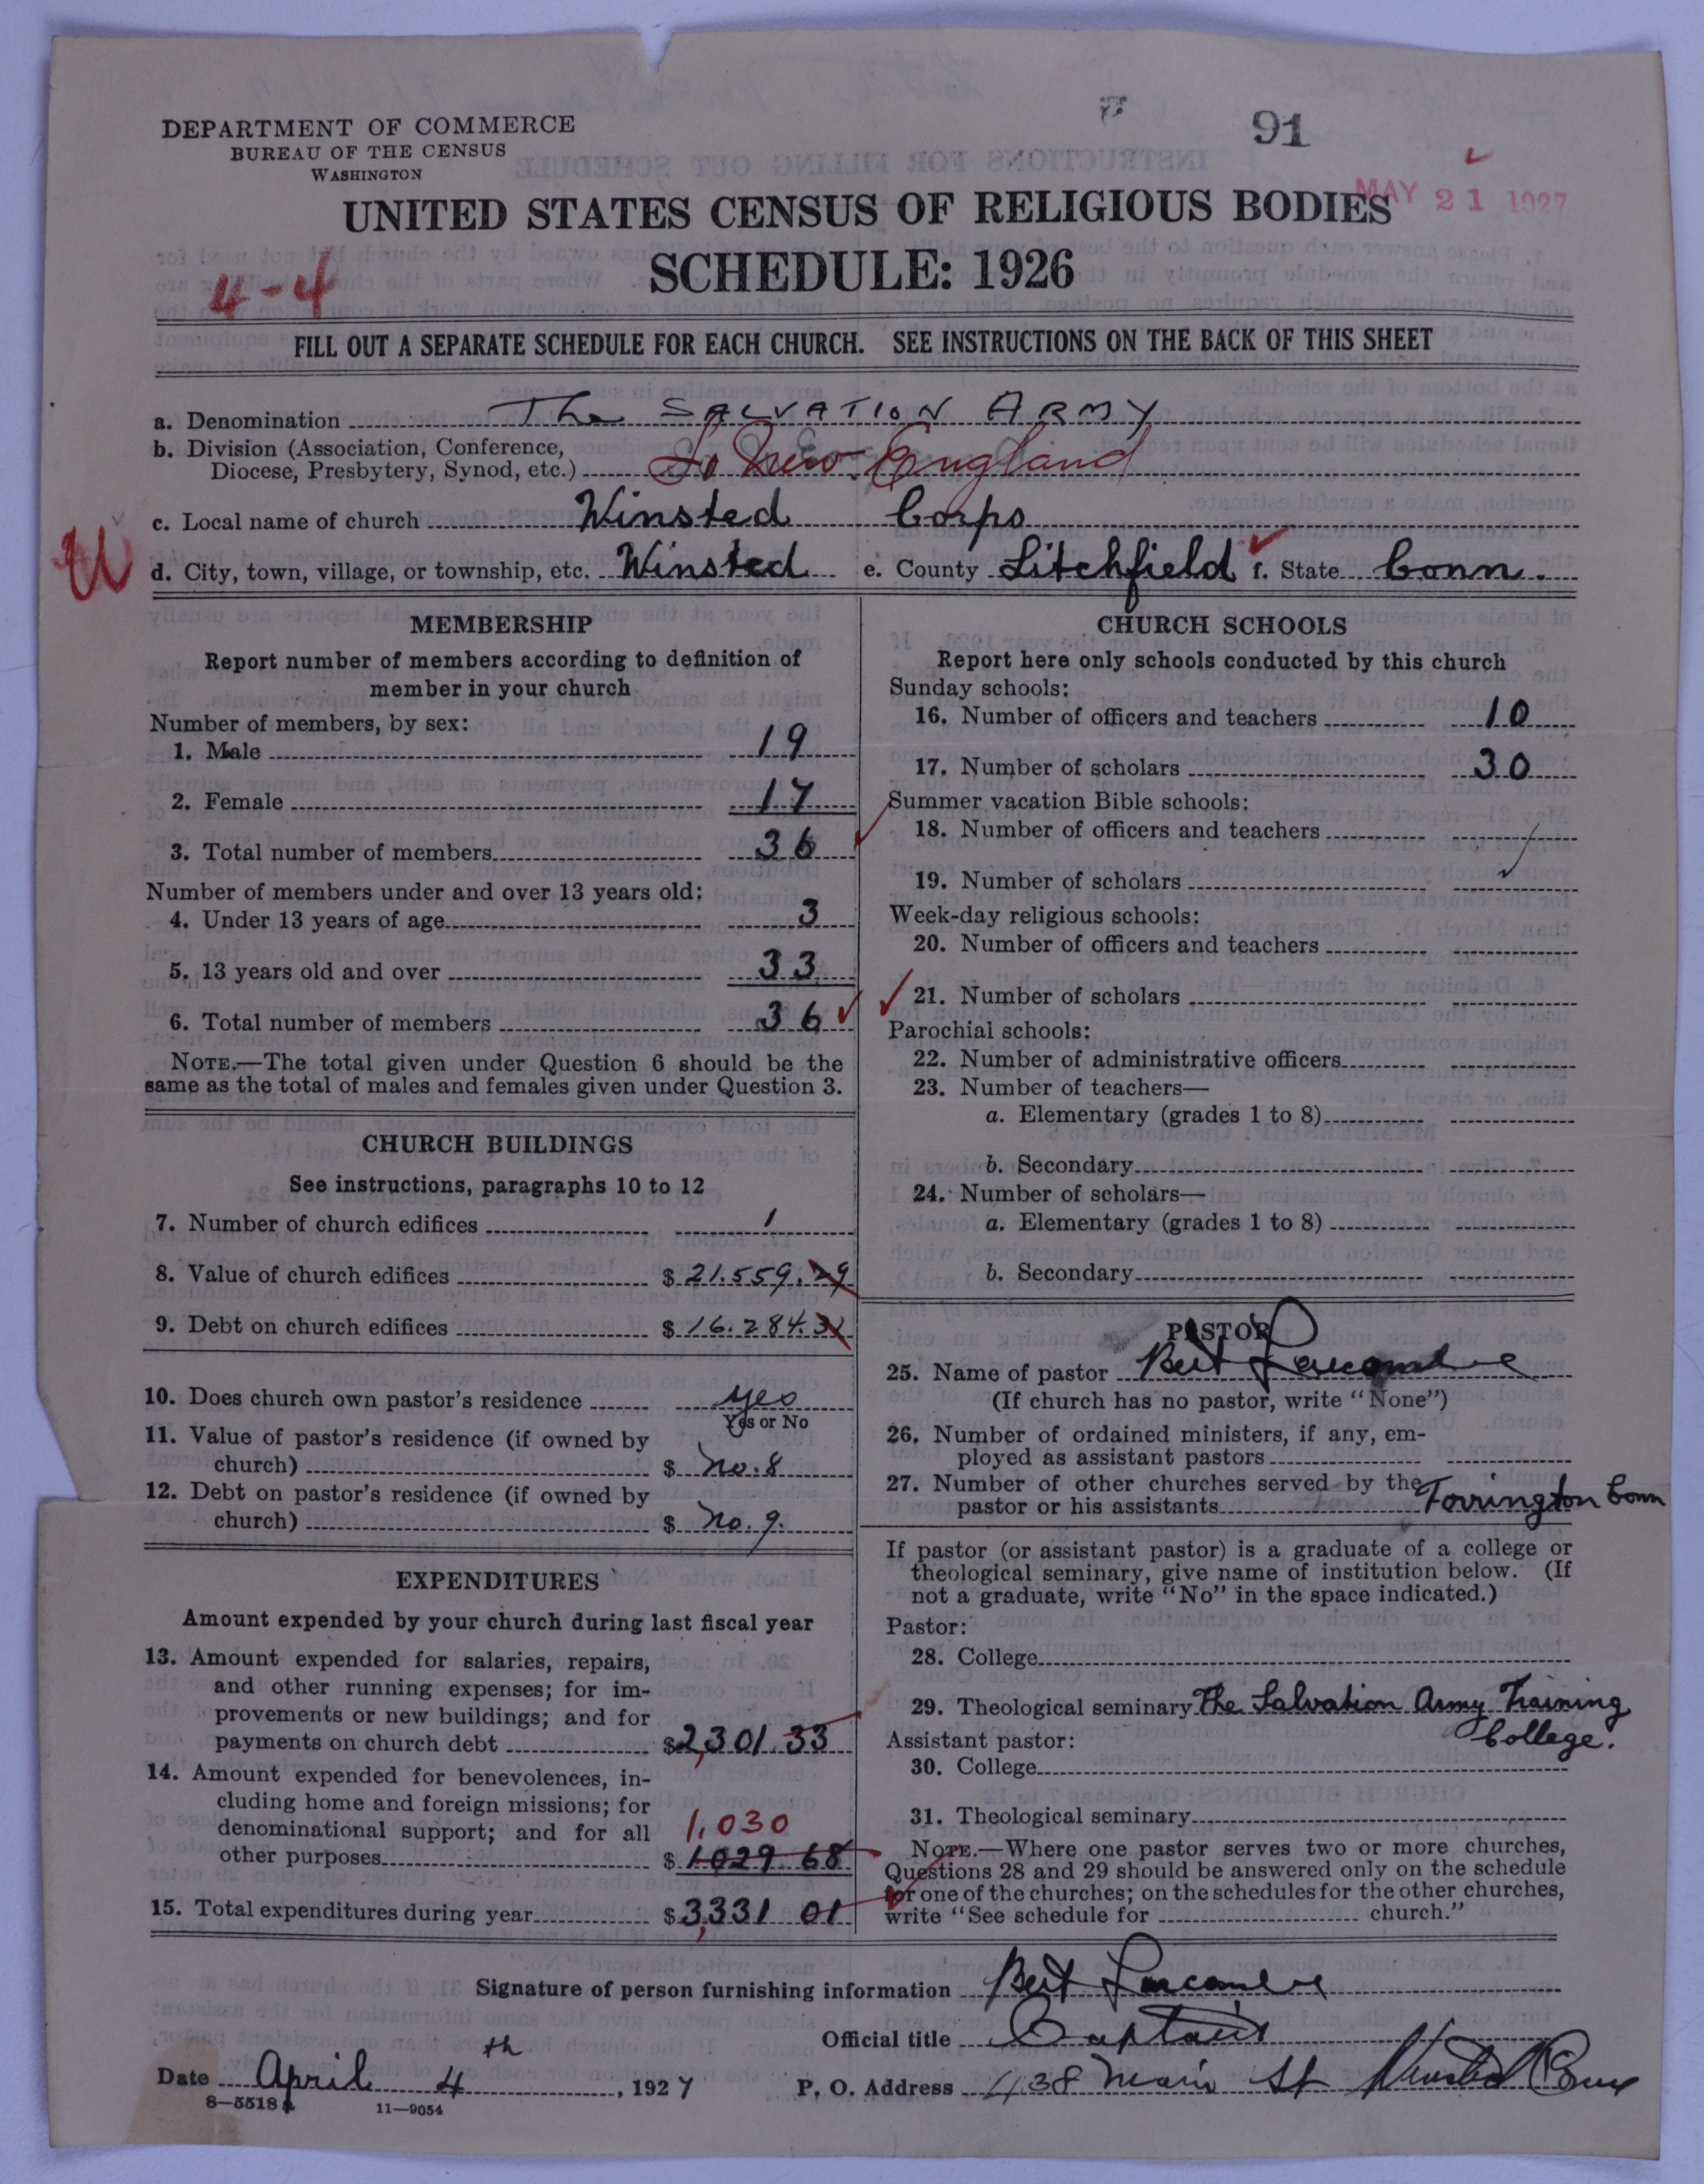 DEPARTMENT OF COMMERCE
BUREAU OF THE CENSUS
WASHINGTON
91
MAY 21 1927
UNITED STATES CENSUS OF RELIGIOUS BODIES
SCHEDULE: 1926
4-4
FILL OUT A SEPARATE SCHEDULE FOR EACH CHURCH. SEE INSTRUCTIONS ON THE BACK OF THIS SHEET
a. Denomination The SALVATION ARMY
b. Division (Association, Conference,
Diocese, Presbytery, Synod, etc.) So New England
c. Local name of church Winsted Corps
W
d. City, town, village, or township, etc. Winsted e. County Litchfield f. State Conn.
MEMBERSHIP
Report number of members according to definition of
member in your church
Number of members, by sex:
1. Male 19
2. Female 17
3. Total number of members 36
Number of members under and over 13 years old:
4. Under 13 years of age 3
5. 13 years old and over 33
6. Total number of members 36
NOTE.—The total given under Question 6 should be the
same as the total of males and females given under Question 3.
CHURCH BUILDINGS
See instructions, paragraphs 10 to 12
7. Number of church edifices 1
8. Value of church edifices $ 21.559.29
9. Debt on church edifices $ 16.284.31
10. Does church own pastor's residence yes
Yes or No
11. Value of pastor's residence (if owned by
church) $ No. 8
12. Debt on pastor's residence (if owned by
church) $ No. 9.
EXPENDITURES
Amount expended by your church during last fiscal year
13. Amount expended for salaries, repairs,
and other running expenses; for im-
provements or new buildings; and for
payments on church debt $2,301.33
14. Amount expended for benevolences, in-
cluding home and foreign missions; for
denominational support; and for all 1,030
other purposes $ 1029 68
15. Total expenditures during year $3,331 01
CHURCH SCHOOLS
Report here only schools conducted by this church
Sunday schools:
16. Number of officers and teachers 10
17. Number of scholars 30
Summer vacation Bible schools:
18. Number of officers and teachers
19. Number of scholars
Week-day religious schools:
20. Number of officers and teachers
21. Number of scholars
Parochial schools:
22. Number of administrative officers
23. Number of teachers—
a. Elementary (grades 1 to 8)
b. Secondary
24. Number of scholars—
a. Elementary (grades 1 to 8)
b. Secondary
PASTOR
25. Name of pastor Bert
(If church has no pastor, write "None")
26. Number of ordained ministers, if any, em-
ployed as assistant pastors
27. Number of other churches served by the
pastor or his assistants Torrington Conn
If pastor (or assistant pastor) is a graduate of a college or
theological seminary, give name of institution below. (If
not a graduate, write "No" in the space indicated.)
Pastor:
28. College
29. Theological seminary The Salvation Army Training
College.
Assistant pastor:
30. College
31. Theological seminary
NOTE.—Where one pastor serves two or more churches,
Questions 28 and 29 should be answered only on the schedule
for one of the churches; on the schedules for the other churches,
write "See schedule for church."
Signature of person furnishing information Bert
Official title Captain
Date April 4th, 1927 P. O. Address 438 Main St Winsted Conn
8—5518a 11—9054